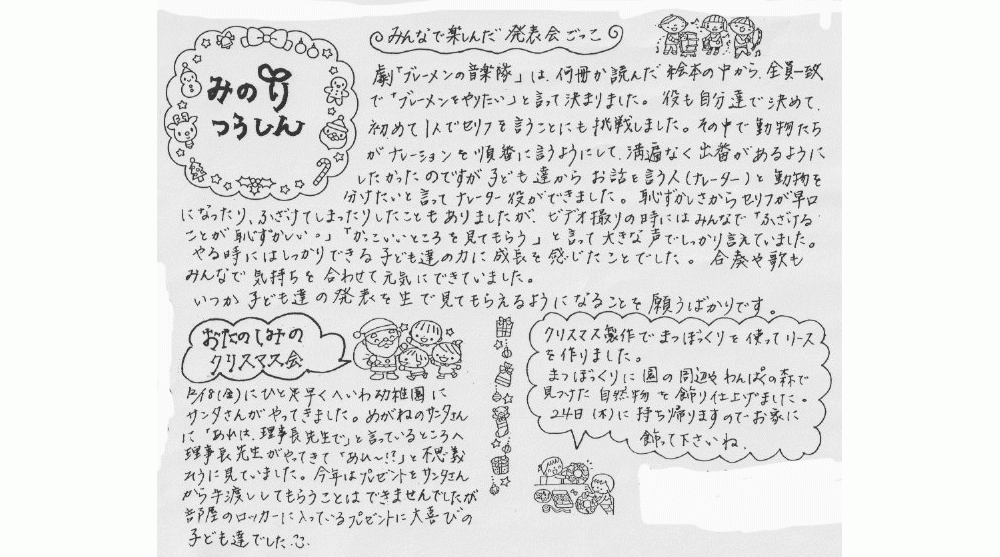 みのり
つうしん
みんなで楽しんだ発表会ごっこ
劇「ブレーメンの音楽隊」は、何冊か読んだ絵本の中から、全員一致
で「ブレーメンをやりたい」と言って決まりました。役も自分達で決めて、
初めて1人でセリフを言うことにも挑戦しました。その中で動物たち
がナレーションを順番に言うようにして、満遍なく出番があるように
したかったのですが子ども達から お話を言う人(ナレーター)と動物を
分けたいと言ってナレーター役ができました。恥ずかしさからセリフが早口
になったり、ふざけてしまったりしたこともありましたが、ビデオ撮りの時にはみんなで「ふざける
ことが恥ずかしい。」「かっこいいところを見てもらう」と言って大きな声でしっかり言えていました。
やる時にはしっかりできる子ども達の力に成長を感じたことでした。合奏や歌も
みんなで気持ちを合わせて元気にできていました。
いつか子ども達の発表を生で見てもらえるようになることを願うばかりです。
おたのしみの
クリスマス会
12/18(金)にひと足早くへいわ幼稚園に
サンタさんがやってきました。めがねのサンタさん
に「あれは、理事長先生で」と言っているところへ
理事長先生がやってきて「あれ〜!?」と不思議
そうに見ていました。今年はプレゼントをサンタさん
から手渡ししてもらうことはできませんでしたが
部屋のロッカーに入っているプレゼントに大喜びの
子ども達でした
クリスマス製作でまつぼっくりを使ってリース
を作りました。
まつぼっくりに園の周辺やわんぱくの森で
見つけた自然物を飾り仕上げました。
24日(木)に持ち帰りますのでお家に
飾って下さいね。